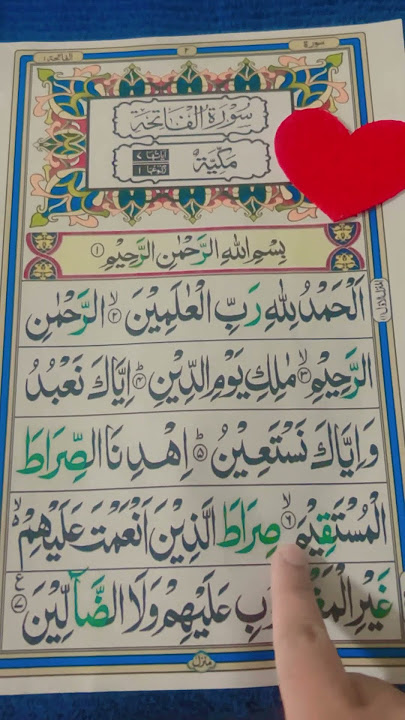 سورة ٢ الفاتحة ١
سُوْرَةُ الْفَاتِحَةِ
مَكِّيَّةٌ
بِسْمِ اللهِ الرَّحْمٰنِ الرَّحِيْمِ ۝١
اَلْحَمْدُ لِلّٰهِ رَبِّ الْعٰلَمِيْنَ ۝٢ۙ الرَّحْمٰنِ
الرَّحِيْمِ ۝٣ۙ مٰلِكِ يَوْمِ الدِّيْنِ ۝٤ؕ اِيَّاكَ نَعْبُدُ
وَاِيَّاكَ نَسْتَعِيْنُ ۝٥ؕ اِهْدِنَا الصِّرَاطَ
الْمُسْتَقِيْمَ ۝٦ۙ صِرَاطَ الَّذِيْنَ اَنْعَمْتَ عَلَيْهِمْ ۙ۵
غَيْرِ عَلَيْهِمْ وَلَا الضَّآلِّيْنَ ۝٧ ع
منزل